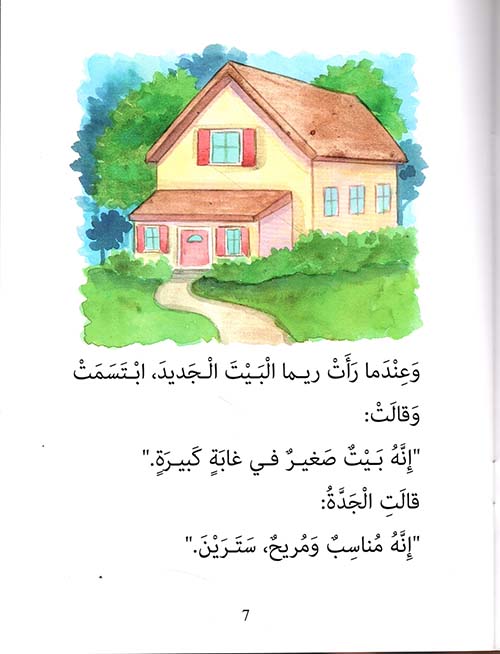 وَعِنْدَما رَأَتْ ريـما الْبَـيْتَ الْـجَديدَ، ابْـتَسَمَتْ
وَقالَتْ:
"إِنَّهُ بَـيْتٌ صَغيـرٌ فـي غابَةٍ كَبيـرَةٍ."
قالَتِ الْجَدَّةُ:
"إِنَّهُ مُناسِبٌ وَمُريحٌ، سَتَـرَيْنَ."
7